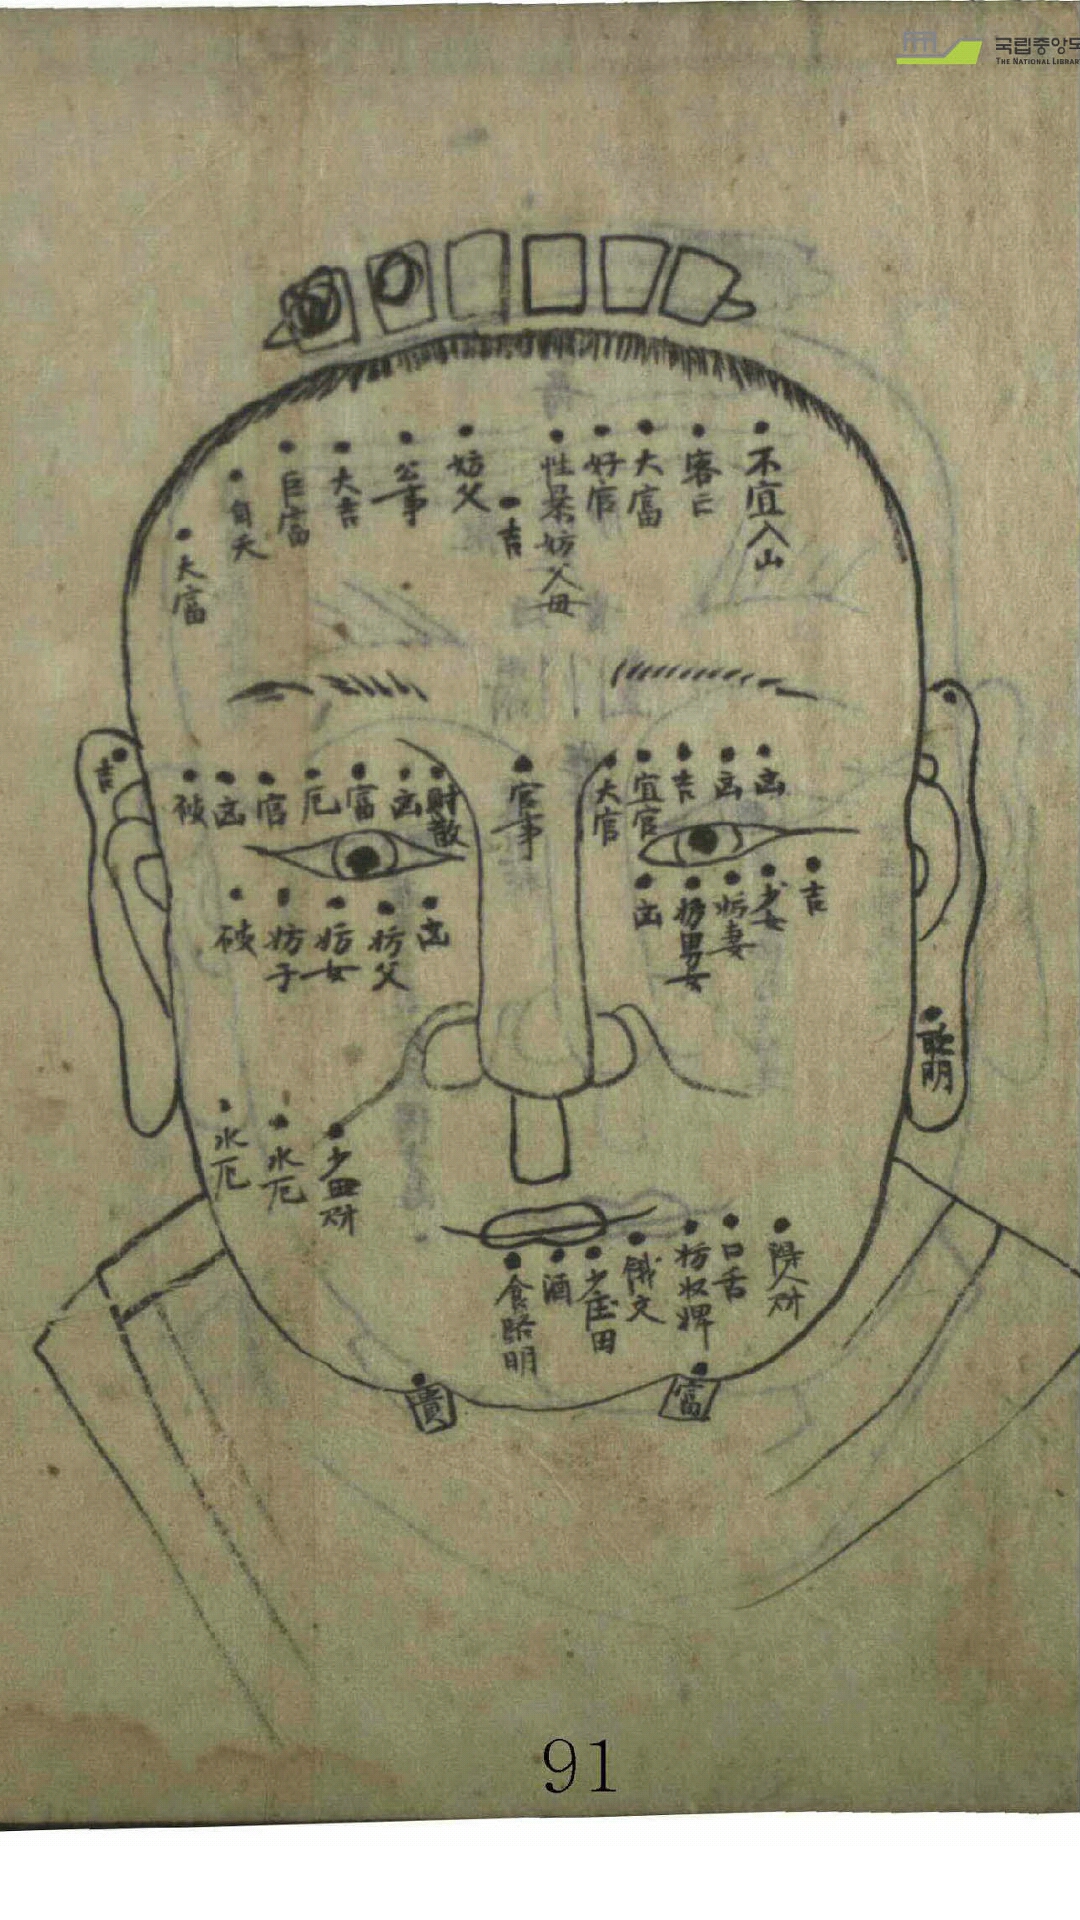 국립중앙도
THE NATIONAL LIBRAR
不宜入山
客亡
大富
好官
性暴妨父母
吉
妨父
公事
大吉
巨富
大富
凶
凶
吉
宜官
大官
官事
財散
凶
富
厄
官
凶
破
吉
吉
少女
妨妻
妨男女
凶
凶
妨父
妨女
妨子
破
聰明
水厄
水厄
口舌
妨奴婢
少庄田
酒
富
貴
91